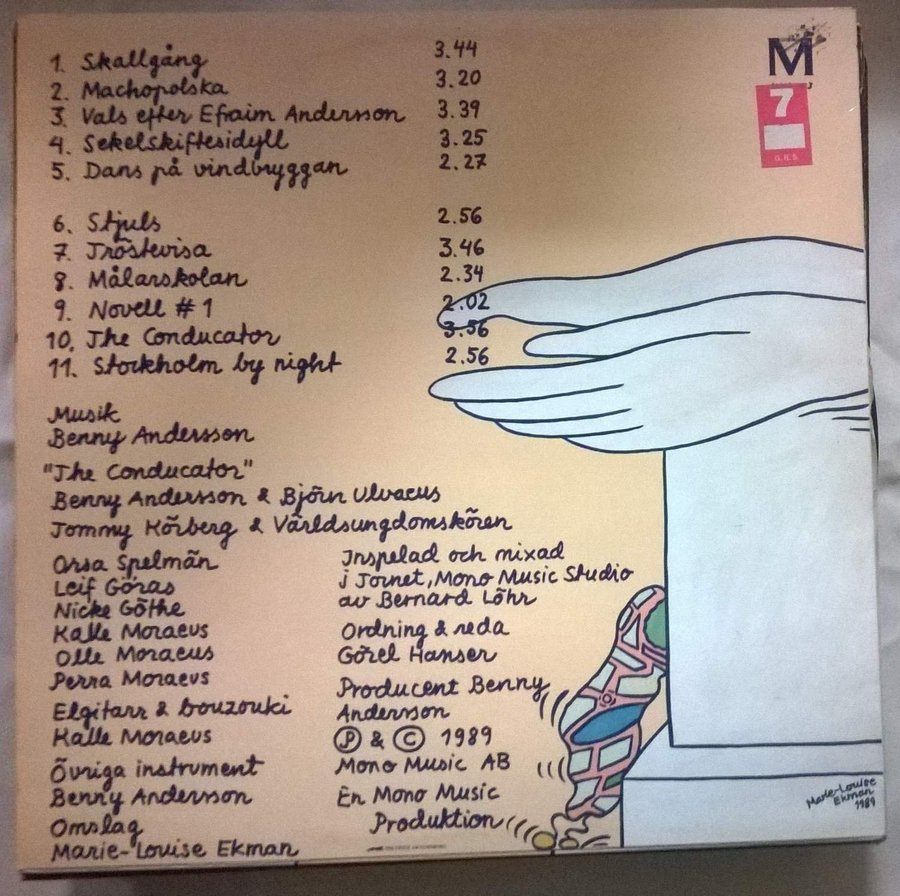 1. Skallgång 3.44
2. Machopolska 3.20
3. Vals efter Efraim Andersson 3.39
4. Sekelskiftesidyll 3.25
5. Dans på vindbryggan 2.27
6. Stjuls 2.56
7. Tröstevisa 3.46
8. Målarskolan 2.34
9. Novell # 1 2.02
10. The Conducator 3.56
11. Stockholm by night 2.56
Musik
Benny Andersson
"The Conducator"
Benny Andersson & Björn Ulvaeus
Tommy Körberg & Världsungdomskören
Orsa Spelmän
Leif Göras
Nicke Göthe
Kalle Moraeus
Olle Moraeus
Perra Moraeus
Elgitarr & bouzouki
Kalle Moraeus
Övriga instrument
Benny Andersson
Omslag
Marie-Louise Ekman
Inspelad och mixad
i Tornet, Mono Music Studio
av Bernard Löhr
Ordning & reda
Görel Hanser
Producent Benny
Andersson
Ⓟ & © 1989
Mono Music AB
En Mono Music
Produktion
M
7
Marie-Louise
Ekman
1989